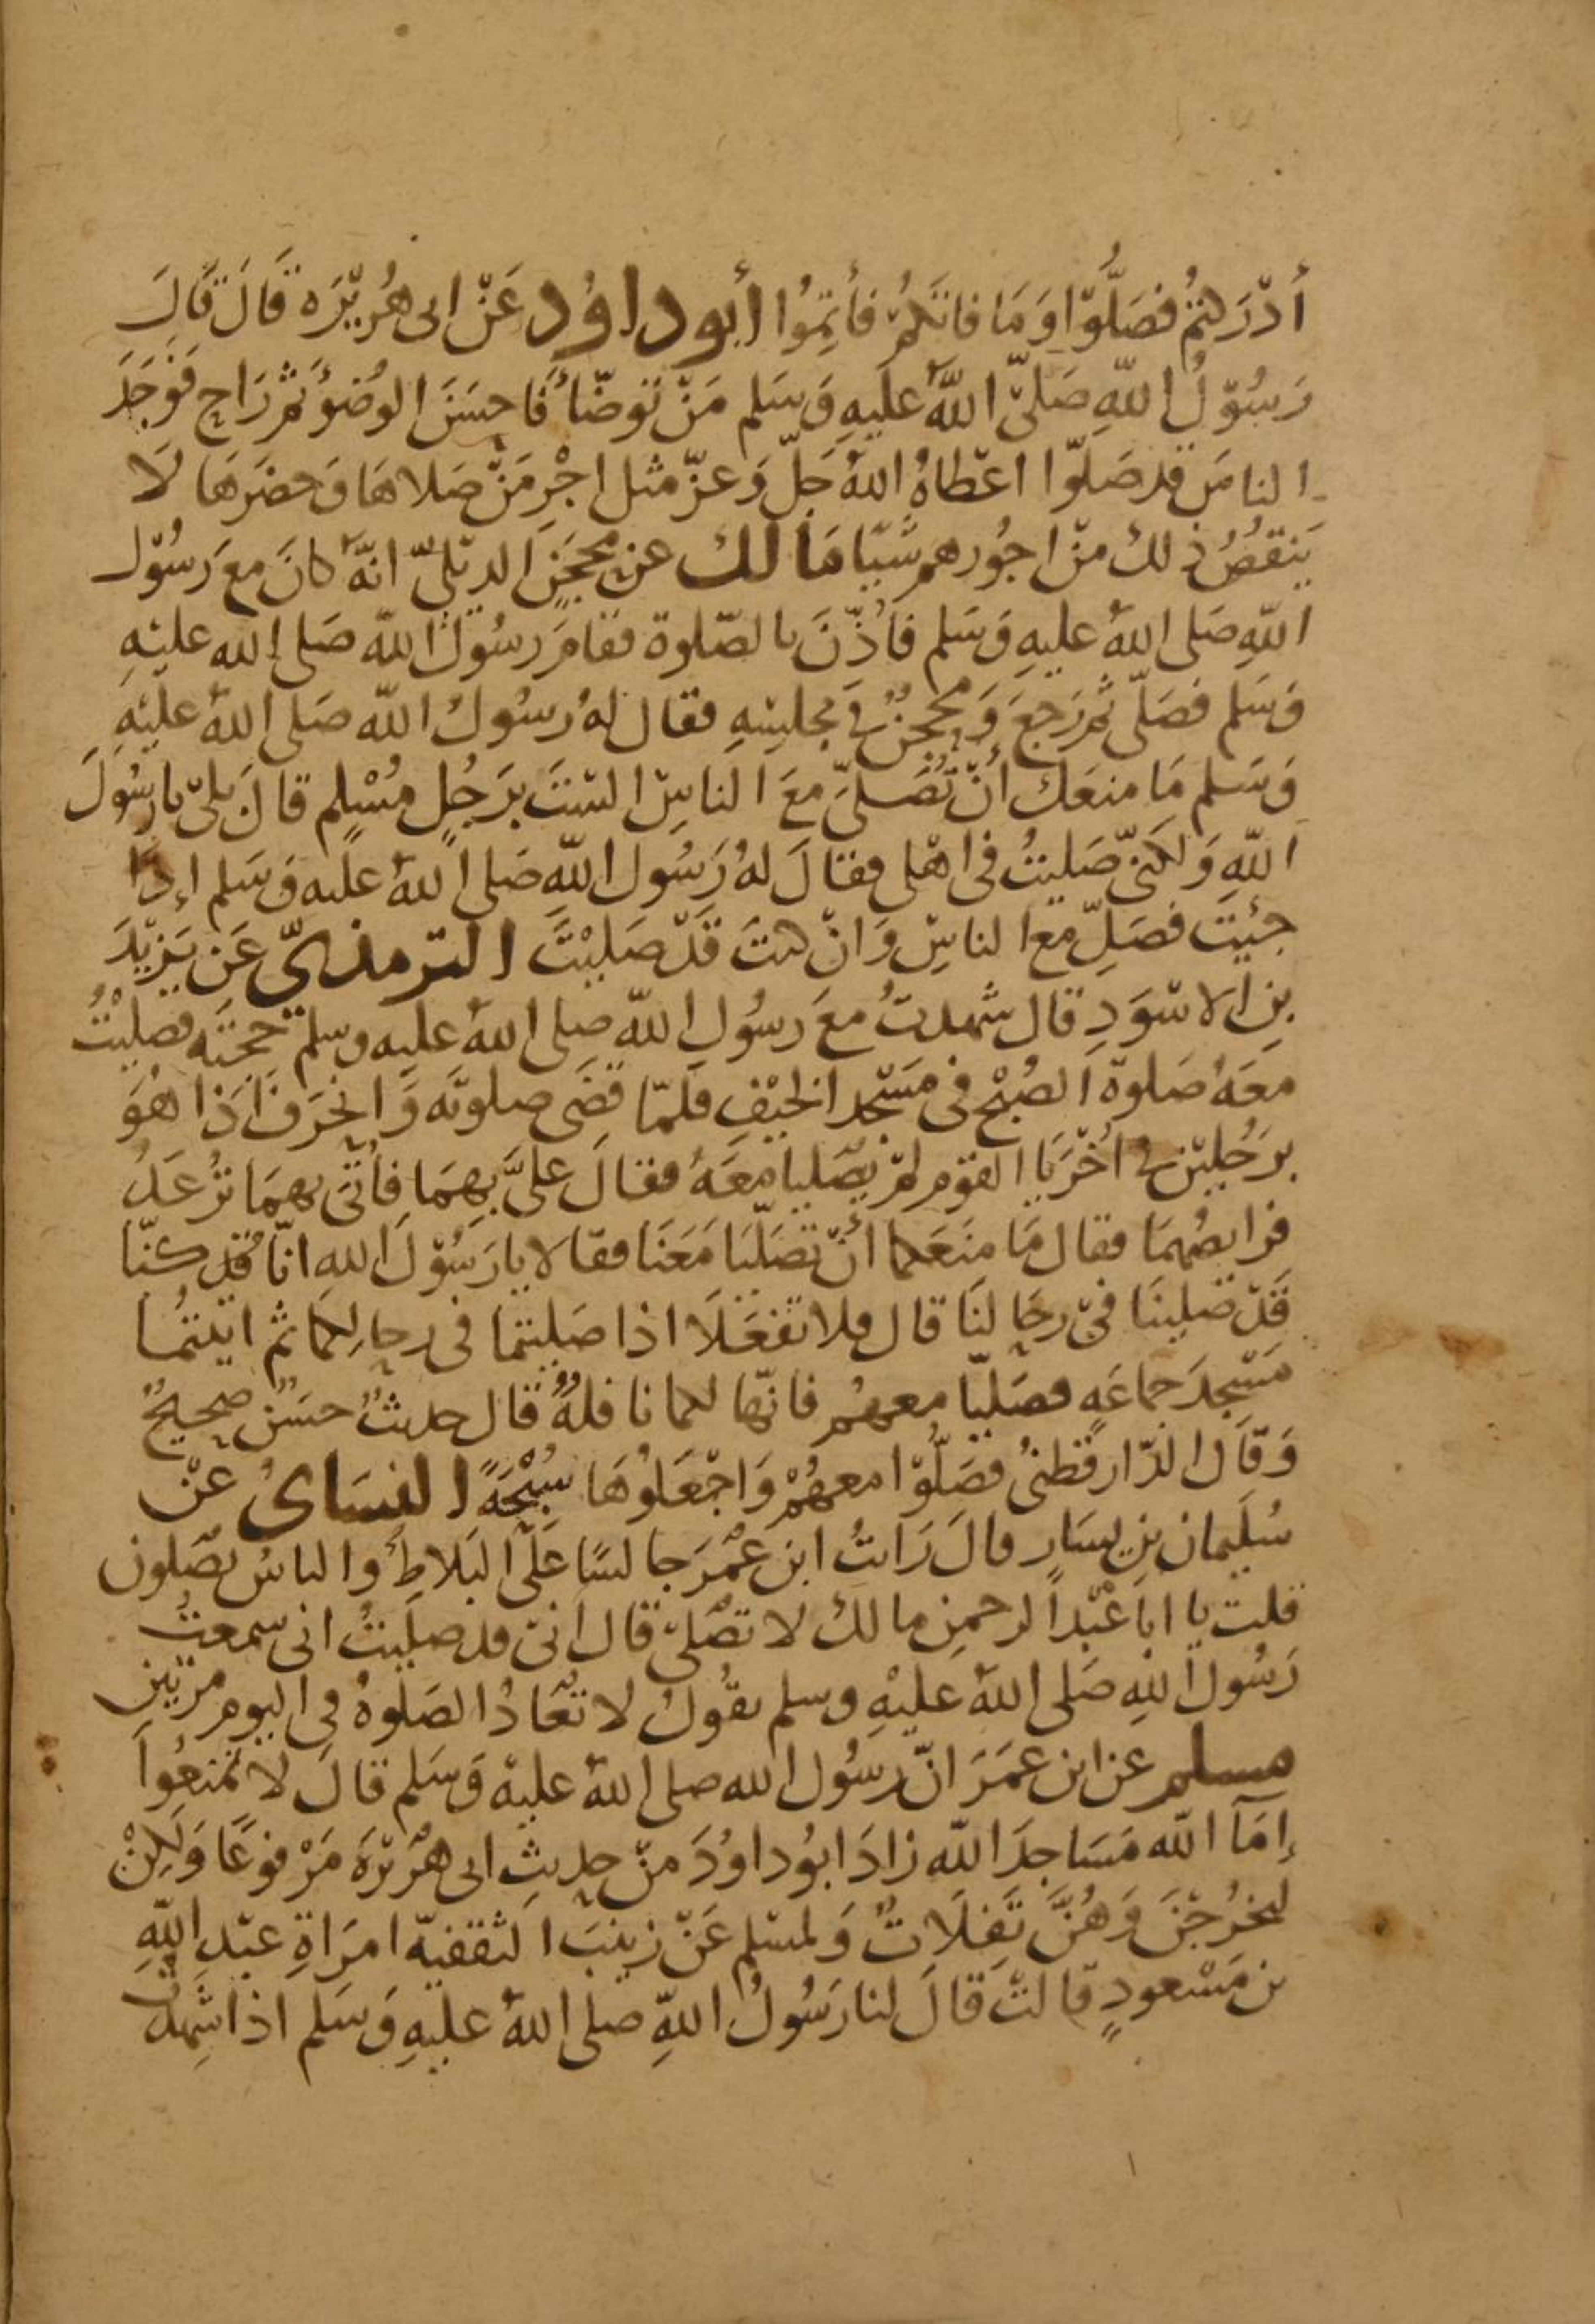 أدْرَكتمُ فصَلُّوْا وَمَا فاتكمُ فأتِمُّوا أبو داوُد عَنْ ابى هُرَيْرَه قَالَ قَالَ
رَسُوْلُ اللهِ صَلىّ اللهُ علَيهِ وَسَلم مَنْ تَوضّأ فَاحسَنَ الوُضوُء ثمَّ رَاح فوَجَدَ
الناسَ قد صَلوّا اعْطاهُ اللهُ جَلّ وَعزّ مثل اجْرِ مَنْ صَلاهَا وَحضرَهَا لَا
يَنقصُ ذلك منْ اجُورهم شَيّا مَالك عن محجَنٍ الديْلىّ انهَّ كانَ معَ رَسُوْل
اللهِ صَلى اللهُ عليهِ وَسَلم فَأذّنَ بالصّلوة فقامَ رسُولُ الله صَلى الله عليْهِ
وَسَلم فصَلّى ثمَّ رَجعَ وَمحجنٌ فى مجلِسِهِ فقال لهُ رسُولُ الله صَلى اللهُ عليْهِ
وَسَلم مَا منعَك أنْ تُصَلىّ معَ الناسِ السْتَ برَجُلٍ مُسْلِم قالَ بلىّ يا رسُوَلَ
اللهِ وَلكنىّ صَليتُ فى اهْلى فقالَ لهُ رَسُول اللهِ صَلى اللهُ عليه وَسَلم إذَا
جئِتَ فصَلِّ مع الناسِ وَانْ كنتَ قَدْ صَليْتَ الترمذىّ عَن يَزيْدَ
بنِ الاسْوَدِ قال شَهدتُ معَ رسُولِ الله صلى اللهُ عليه وسلم حجتَه فصَليْتُ
معَهُ صَلوة الصُبْح فى مسَجْد الخيْفِ فلَمّا قضَى صلوتَه وَانحَرفَ اذَا هُوَ
برَجُليْن فى اُخْرَيا القوم لمْ يصَليا معَهُ فقالَ علىَّ بهِمَا فأتىَ بهمَا تُرْعَدُ
فرايصُهُمَا فقال مَا مَنَعَكما أنْ تصَلّيَا مَعَنَا فقالا يا رَسُوْلَ الله انّا قُد كنّا
قَدْ صَلينَا فىْ رحَالِنَا قال فلا تفعَلَا اذا صَليتمَا فى رحالِكمَا ثم اتيتمُا
مَسْجِدَ جماعَةٍ فصَليّا معهُم فانّها لكما نافلهٌ قال حديثٌ حسَنٌ صَحيحٌ
وَقاَل الدّار قُطنىُ فصَلُّوْا معهُمْ وَاجْعَلوُهَا سُبْحَةً النسَائُ عنْ
سُلَيمان بنِ يسَار قالَ رَايتُ ابن عُمرَ جالسًا عَلىَ البَلاطِ والناسُ يصَلون
قلت يا اباَ عَبْد الرحمنِ مالك لا تصَلىّ قال اَنىّ قد صَليتُ انى سَمعتُ
رَسُول اللهِ صَلى اللهُ عليْهِ وسلم يقُولُ لا تُعَادُ الصَلوةُ فى اليوم مرتينِ
مسلم عن ابن عمَرَ انّ رسُول الله صلى اللهُ عليْهِ وَسَلم قالَ لا تمْنعُواَ
إمَآ الله مَسَاجدَ الله زادَ ابوُ داوُدَ منْ حديثِ ابى هُرَيْرَةَ مَرْفوعًا وَلكِنْ
ليخرُجْنَ وَهُنَّ تَفِلَاتٌ وَلمسْلِم عَنْ زينبَ الثقفيّهِ امرَاةِ عبْدِ اللهِ
بن مَسْعودٍ قالتْ قالَ لنا رَسُولُ اللهِ صلى اللهُ عليهِ وَسَلم اذا شَهِدتْ